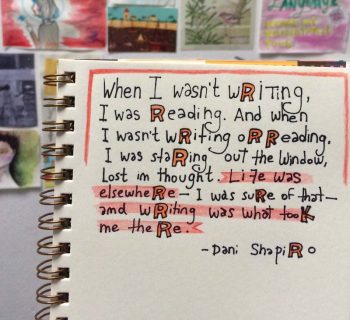 When I wasn't wRiTing,
I was Reading. And when
I wasn't wRiting oR Reading,
I was staRing out the window,
Lost in thought. Life was
elsewheRe – I was suRe of that –
and wRiting was what tooK
me theRe.
- Dani ShapiRo